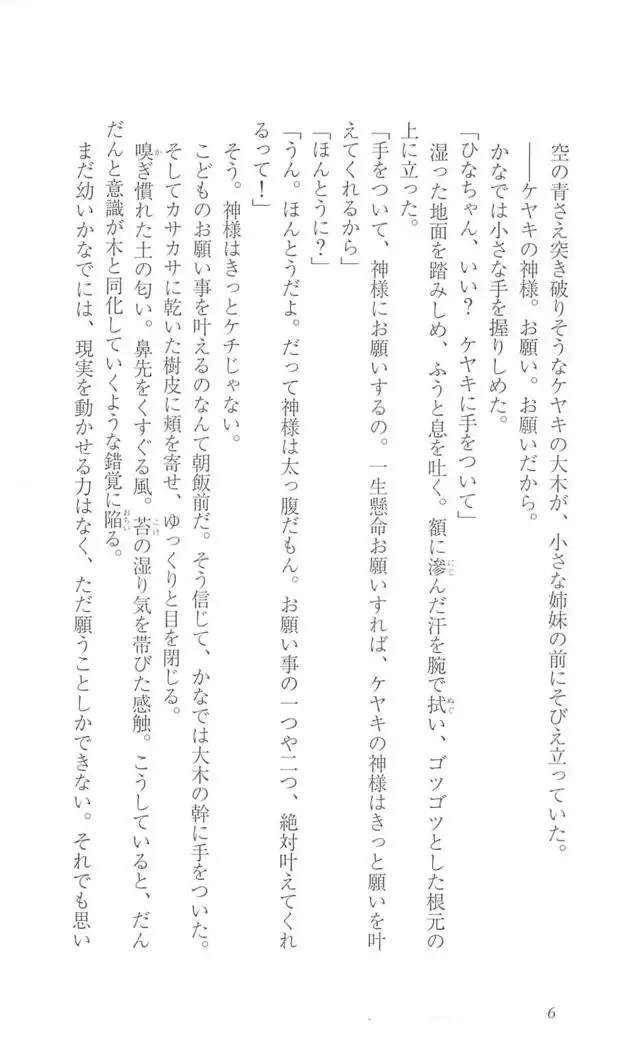 空の青さえ突き破りそうなケヤキの大木が、小さな姉妹の前にそびえ立っていた。
――ケヤキの神様。お願い。お願いだから。
かなでは小さな手を握りしめた。
「ひなちゃん、いい？　ケヤキに手をついて」
湿った地面を踏みしめ、ふうと息を吐く。額に滲んだ汗を腕で拭い、ゴツゴツとした根元の
上に立った。
「手をついて、神様にお願いするの。一生懸命お願いすれば、ケヤキの神様はきっと願いを叶
えてくれるから」
「ほんとうに？」
「うん。ほんとうだよ。だって神様は太っ腹だもん。お願い事の一つや二つ、絶対叶えてくれ
るって！」
そう。神様はきっとケチじゃない。
こどものお願い事を叶えるのなんて朝飯前だ。そう信じて、かなでは大木の幹に手をついた。
そしてカサカサに乾いた樹皮に頬を寄せ、ゆっくりと目を閉じる。
嗅ぎ慣れた土の匂い。鼻先をくすぐる風。苔の湿り気を帯びた感触。こうしていると、だん
だんと意識が木と同化していくような錯覚に陥る。
まだ幼いかなでには、現実を動かせる力はなく、ただ願うことしかできない。それでも思い
6